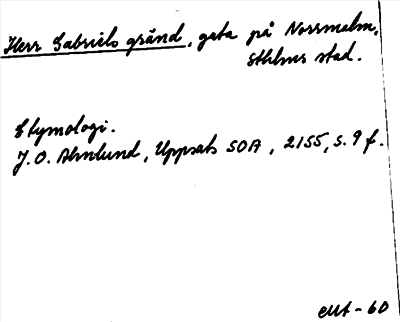 Herr Gabriels gränd, gata på Norrmalm,
Sthlms stad.
Etymologi.
J. O. Almlund, Uppsats SOA, 2155, s. 9 f.
EUt-60